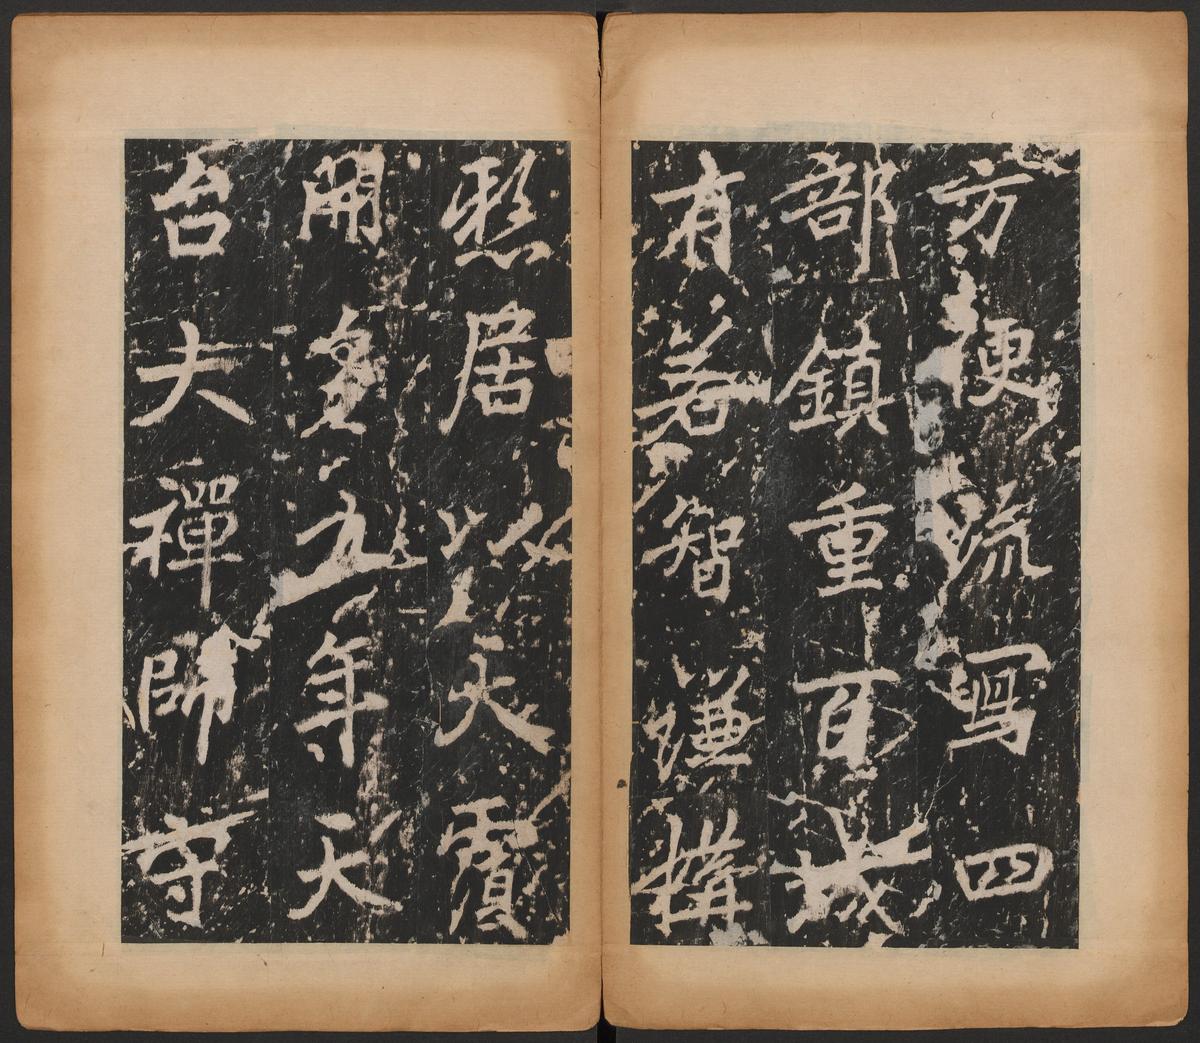 方便流寫四
部鎮重百城
有若智謙搆
憩居以天寶
開皇九年天
台大禪師守